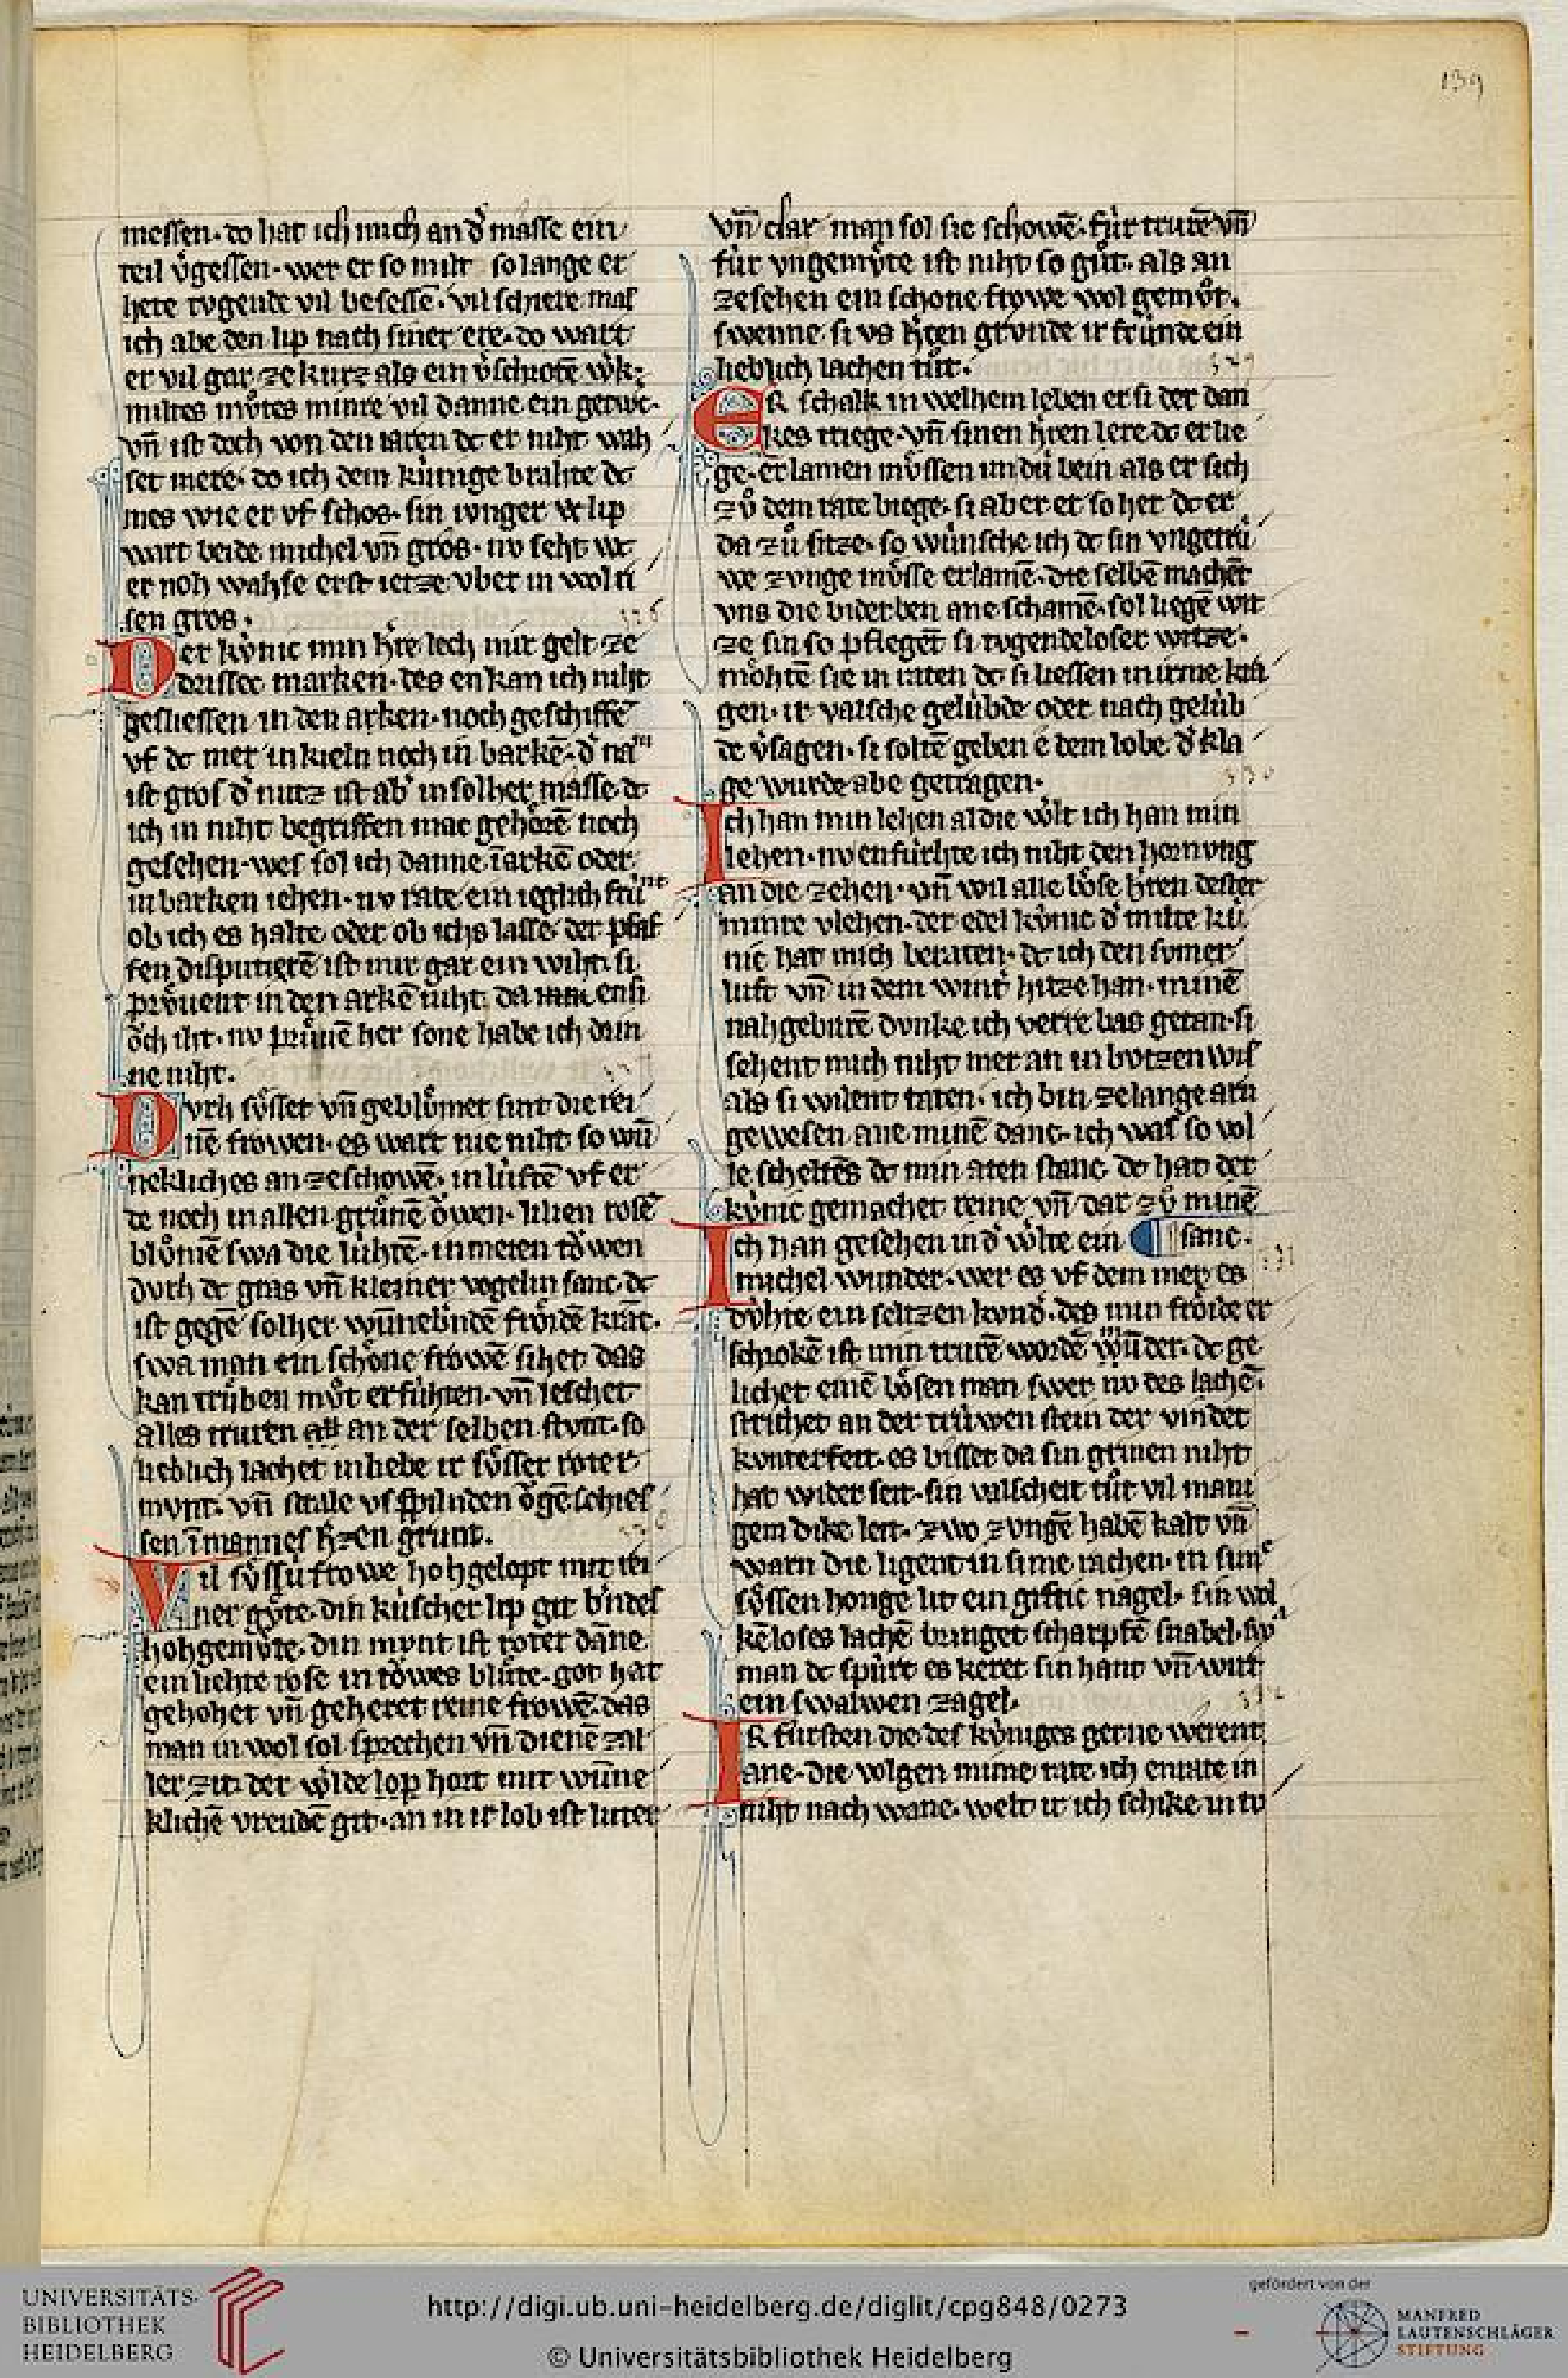 139
messen. do hat ich mich an d͛ masse ein
teil v͛gessen. wer er so milt so lange er
hete tvgende vil besessē. vil schiere mas
ich abe den lip nach siner ere. do wart
er vil gar ze kurz als ein v͛schrotē w͛k.
miltes mv̊tes minre vil danne ein getwc.
vn̄ ist doch von den iaren dc er niht wah
set mere. do ich dem kúnige brahte dc
mes wie er vf schos. sin ivnger lip
wart beide michel vn̄ gros. nv seht wc
er noh wahse erst ietze vber in wol ri
sen gros.
Der kv́nic min h͛re lech mir gelt ze
drissec marken. des enkan ich niht
gesliessen in den arken. noch geschiffē
vf dc mer in kieln noch in barkē. d͛ nam
ist gros d͛ nutz ist ab͛ in solher masse. dc
ich in niht begriffen mac gehörē noch
gesehen. wes sol ich danne ī arkē oder
in barken iehen. nv rate ein ieglich frúnt
ob ich es halte oder ob ichs lasse. der pfaf
fen disputierē ist mir gar ein wiht. si
prv̊uent in den arkē niht. da ensi
ŏch iht. nv prv̊uē her sone habe ich drin
ne niht.
Dvrh sv̊sset vn̄ geblv̊met sint die rei
nē frowen. es wart nie niht so wū
nekliches an ze schowē. in lúftē vf er
de noch in allen grv̊nē ŏwen. lilien rosē
blv̊mē swa die lúhtē. in meien tŏwen
dvrh dc gras vn̄ kleiner vogelin sanc. dc
ist gegē solher wūneb͛ndē frŏidē kranc.
swa man ein schöne frowē sihet das
kan trv̊ben mv̊t erfúhten. vn̄ leschet
alles truren an der selben stvnt. so
lieblich lachet in liebe ir sv̊sser roter
mvnt. vn̄ strale vs spilnden ŏgē schies
sen ī mannes h͛zen grunt.
Vil sv̊ssú frowe hohgelopt mit rei
ner gv̊te. din kúscher lip git b͛ndes
hohgemv̊te. din mvnt ist roter dāne
ein liehte rose in tŏwes blv̊te. got hat
gehohet vn̄ geheret reine frowē. das
man in wol sol sprechen vn̄ dienē zal
ler zit. der w͛lde hort mit wūne
klichē vreudē git. an in ir lob ist luter
vn̄ clar man sol sie schowē. fúr trurē vn̄
fúr vngemv̊te ist niht so gv̊t. als an
zesehen ein schone frowe wol gemv̊t.
swenne si vs h͛zen grvnde ir frúnde ein
lieblich lachen tv̊t.
ER schalk in welhem leben er si der dan
kes triege. vn̄ sinen h͛ren lere dc er lie
ge. erlamen mv̊ssen im dú bein als er sich
zv̊ dem rate biege. si aber er so her dc er
da zv̊ sitze. so wúnsche ich dc sin vngetrú
we zvnge mv̊sse erlamē. die selbē machēt
vns die biderben ane schamē. sol liegē wit
ze sin so pflegēt si tvgendeloser witze.
möhtē sie in raten dc si liessen in irme kra
gen. ir valsche gelúbde oder nach gelúb
de v͛sagen. si soltē geben e dem lobe d͛ kla
ge wurde abe getragen.
Ich han min lehen al die w͛lt ich han min
lehen. nv enfúrhte ich niht den hornvng
an die zehen. vn̄ wil alle böse h͛ren dester
minre vlehen. der edel kv́nic d͛ milte kú
nic hat mich beraten. dc ich den svmer
luft vn̄ in dem wint͛ hitze han. minē
nahgeburē dvnke ich verre bas getan. si
sehent mich niht mer an in butzen wis
als si wilent taten. ich bin ze lange arn
gewesen ane minē danc. ich was so vol
le scheltēs dc min aten stanc. dc hat der
kv́nic gemachet reine vn̄ dar zv̊ minē
Ich han gesehen in d͛ w͛lte ein ¶ sanc.
michel wunder. wer es vf dem mer es
dv̊hte ein seltzen kvnd͛. des min frŏide er
schrokē ist min trurē wordē mūder. dc ge
lichet einē bösen man swer nv des lachē.
strichet an der trúwen stein der vindet
kvnterfeit. es bisset da sin grinen niht
hat widerseit. sin valscheit tv̊t vil mani
gem dike leit. zwo zvngē habē kalt vn̄
warn die ligent in sime rachen. in sime
sv̊ssen honge lit ein giftic nagel. sin wol
kēloses lachē bringet scharpfē hagel. swa
man dc spúrt es keret sin hant vn̄ wirt
ein swalwen zagel.
IR fúrsten die des kv́niges gerne werent
ane. die volgen mime rate ich enrate in
niht nach wane. welt ir ich schike in tv
UNIVERSITÄTS-
BIBLIOTHEK
HEIDELBERG
http://digi.ub.uni-heidelberg.de/diglit/cpg848/0273
© Universitätsbibliothek Heidelberg
gefördert von der
MANFRED
LAUTENSCHLÄGER
STIFTUNG